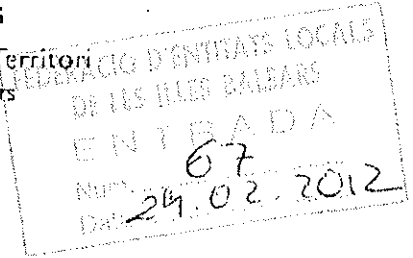 s
Territori
rs
FEDERACIÓ D'ENTITATS LOCALS
DE LES ILLES BALEARS
ENTRADA
Núm. 67
Data 24.02.2012